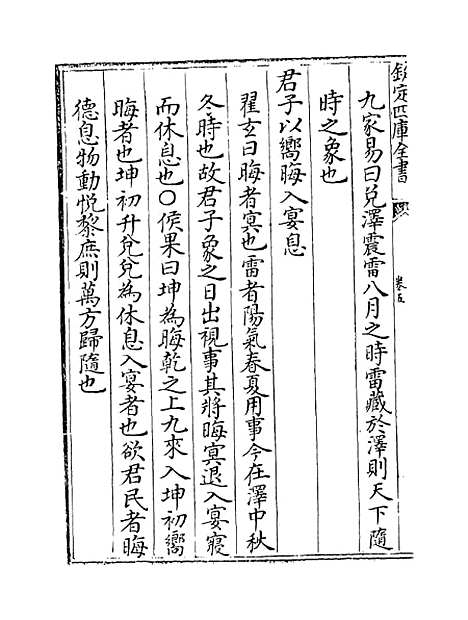 欽定四庫全書
卷五
九家易曰兌澤震雷八月之時雷藏於澤則天下隨
時之象也
君子以嚮晦入宴息
翟玄曰晦者冥也雷者陽氣春夏用事今在澤中秋
冬時也故君子象之日出視事其將晦冥退入宴寢
而休息也○侯果曰坤為晦乾之上九來入坤初嚮
晦者也坤初升兌兌為休息入宴者也欲君民者晦
德息物動悅黎庶則萬方歸隨也